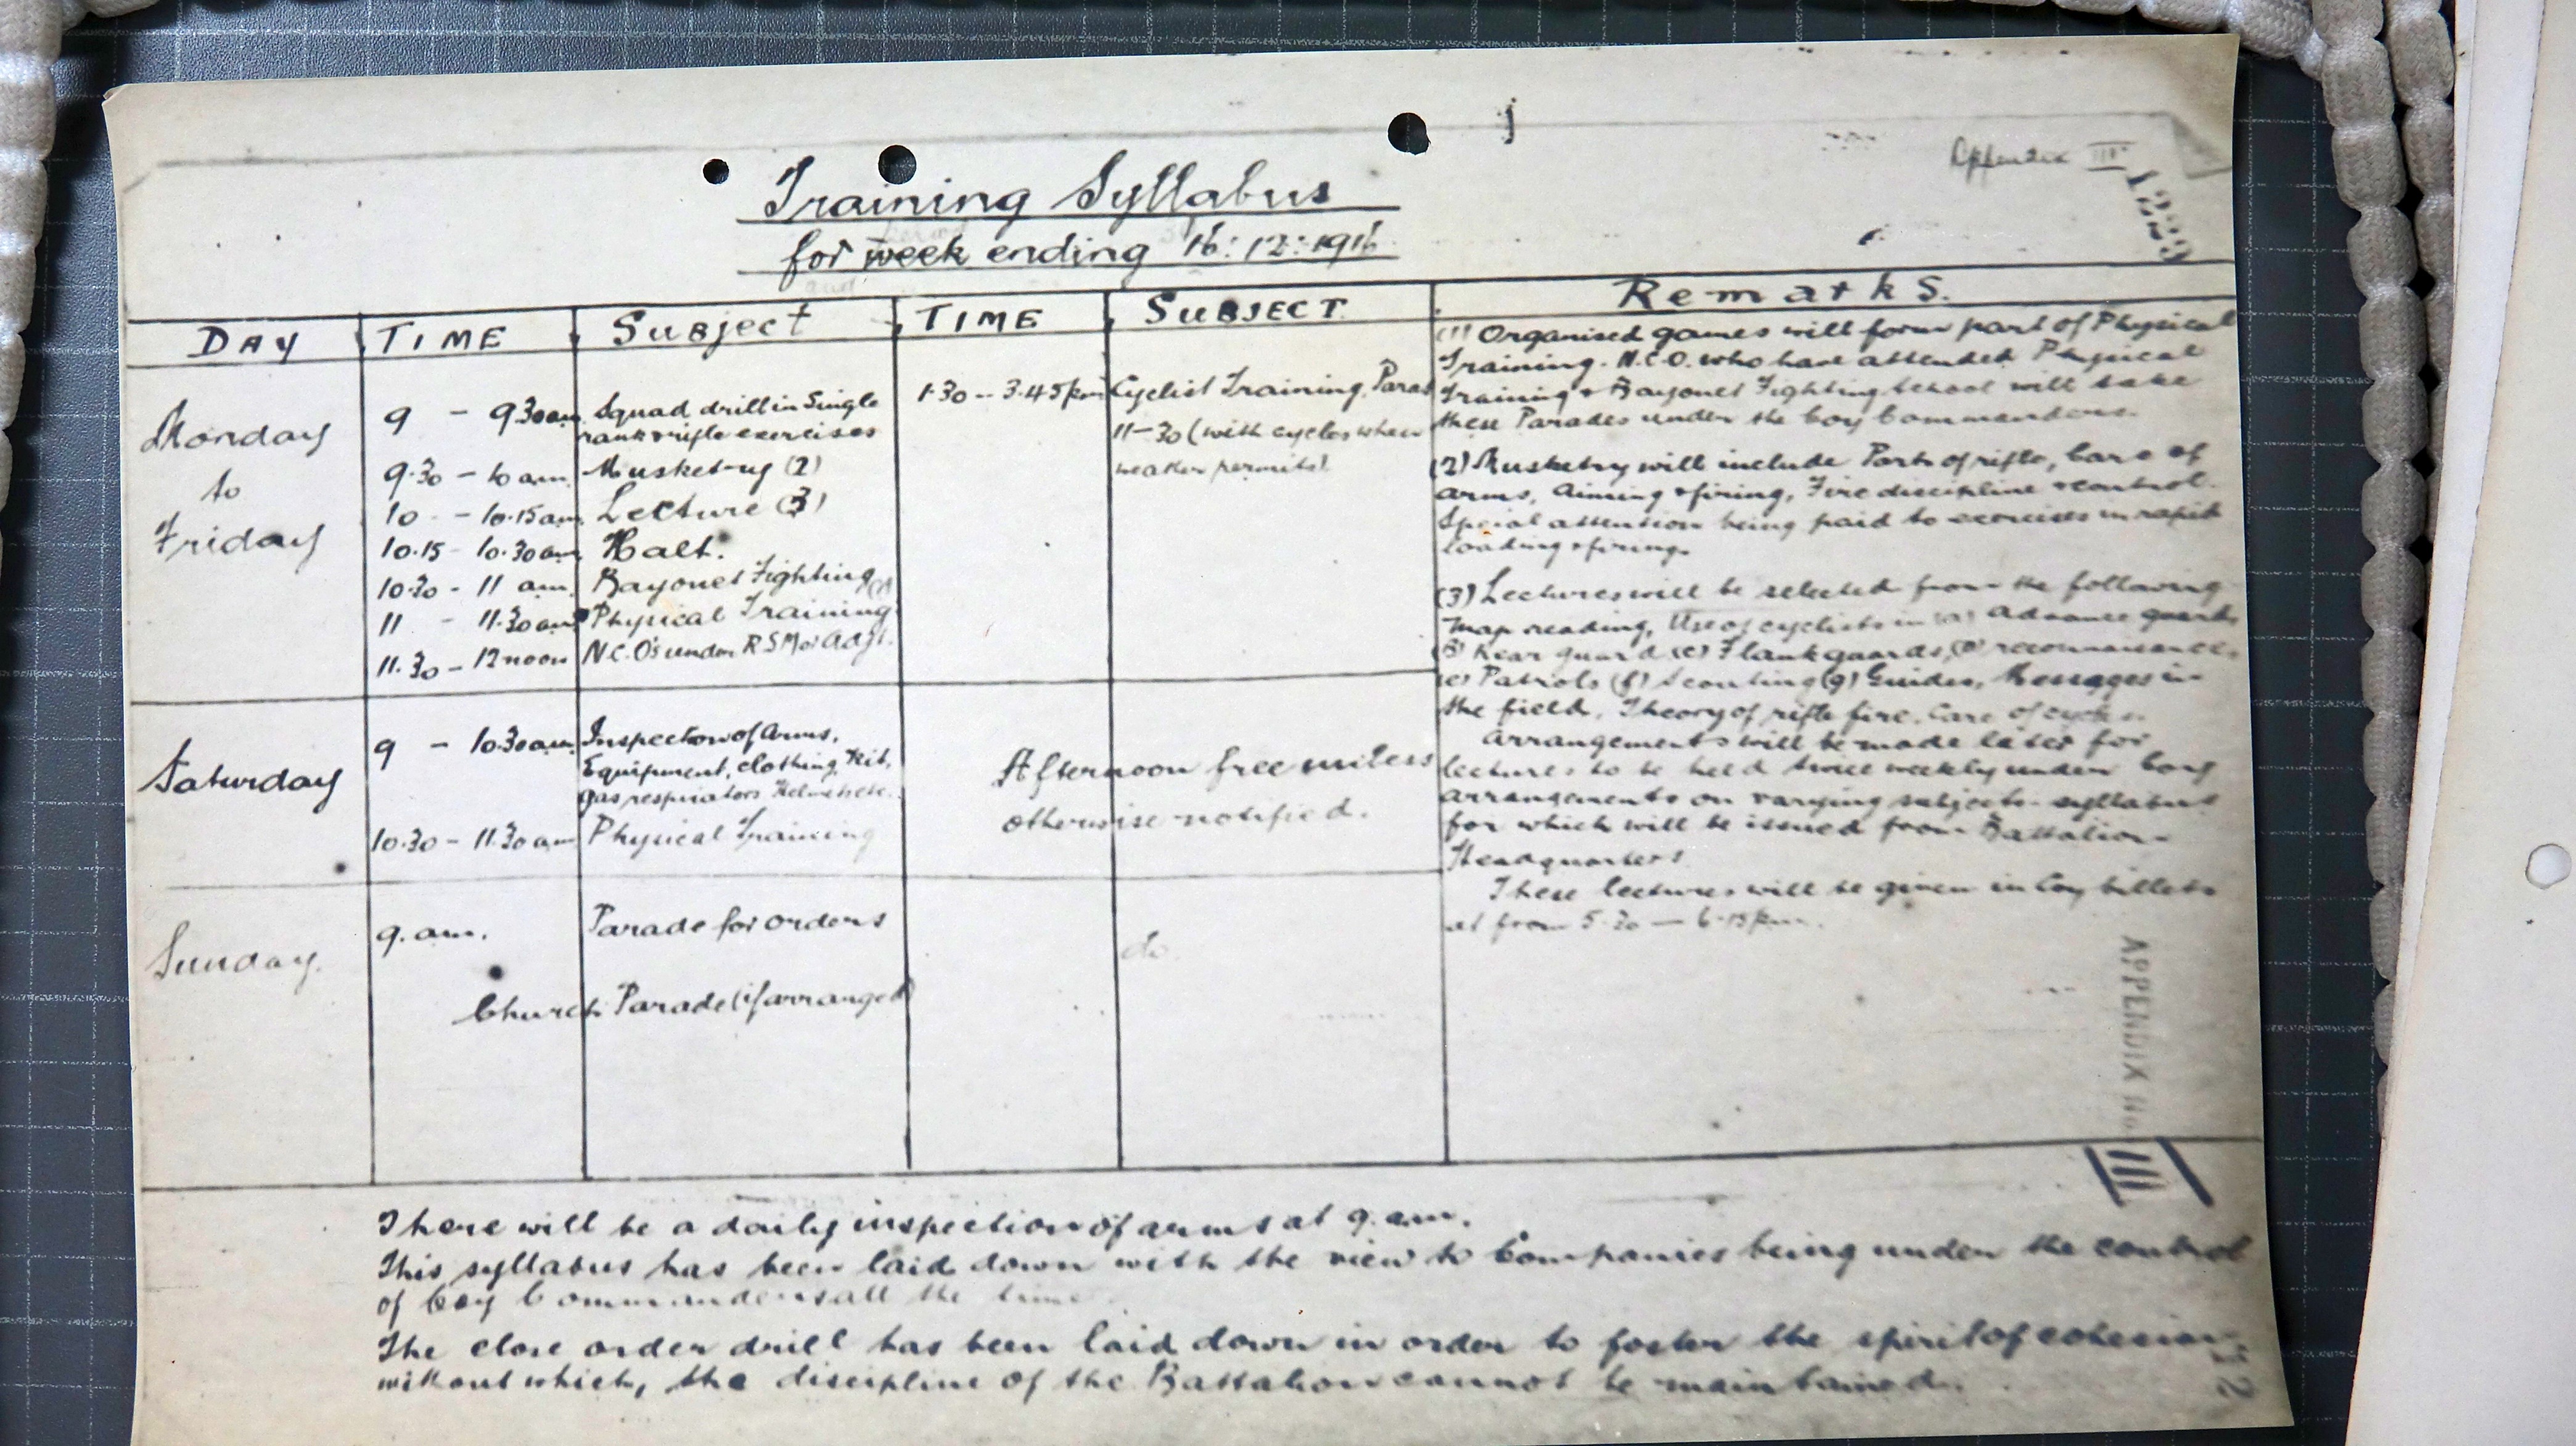 Appendix III
1229
Training Syllabus
for week ending 16:12:1916
DAY TIME SUBJECT TIME SUBJECT Remarks.
Monday
to
Friday
9 - 9.30am Squad drill in Single
rank & rifle exercises
9.30 - 10 am. Musketry (2)
10 - 10.15am Lecture (3)
10.15 - 10.30am Halt.
10.30 - 11 am. Bayonet Fighting
11 - 11.30am Physical Training
11.30 - 12 noon N.C.O's under R.S.M or Adjt.
1.30 - 3.45pm Cyclist Training. Paras
11-30 (with cycles when
weather permits).
Saturday
9 - 10.30am Inspection of Arms,
Equipment, clothing, Kit,
gas respirators Helmets etc.
10.30 - 11.30am Physical Training
Afternoon free unless
otherwise notified.
Sunday.
9. am. Parade for orders
Church Parade (if arranged)
do.
(1) Organised games will form part of Physical
Training. N.C.O. who have attended Physical
Training & Bayonet Fighting School will take
these Parades under the Coy Commanders.
(2) Musketry will include Parts of rifle, Care of
arms, Aiming & firing, Fire discipline & control.
Special attention being paid to exercises in rapid
loading & firing.
(3) Lectures will be selected from the following
Map reading, Use of cyclists in (a) Advance guards
(b) Rear guard (c) Flank guards, (d) reconnaissance,
(e) Patrols (f) Scouting (g) Guides, Messages in
the field, Theory of rifle fire. Care of cycles.
Arrangements will be made later for
lectures to be held twice weekly under Coy
arrangements on varying subjects syllabus
for which will be issued from Battalion
Headquarters
These lectures will be given in Coy billets
at from 5.30 - 6.15pm.
APPENDIX No.
III
There will be a daily inspection of arms at 9. am.
This syllabus has been laid down with the view to Companies being under the control
of Coy Commanders all the time.
The close order drill has been laid down in order to foster the spirit of cohesion
without which, the discipline of the Battalion cannot be maintained.